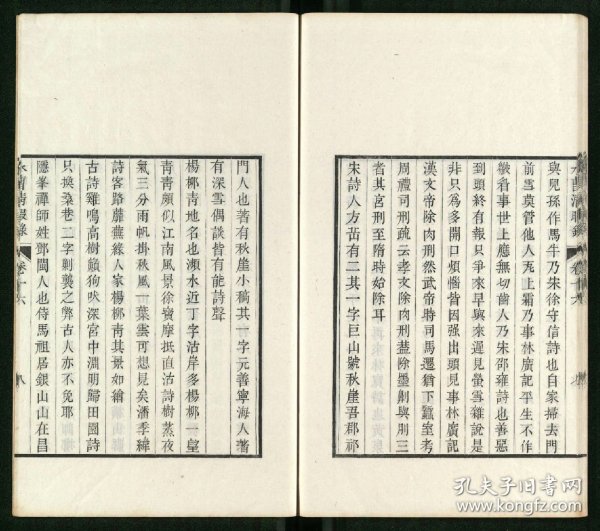 與兒孫作馬牛乃宋徐守信詩也自家掃去門
前雪莫管他人瓦上霜乃事林廣記平生不作
皺眉事世上應無切齒人乃宋邵雍詩也善惡
到頭終有報只爭來早與來遲見螢雪雜說是
非只爲多開口煩惱皆因强出頭見事林廣記
漢文帝除肉刑然武帝時司馬遷猶下蠶室考
周禮司刑疏云孝文除肉刑葢除墨劓與刖三
者其宮刑至隋時始除耳
宋詩人方岳有二其一字巨山號秋崖吾郡祁
卷十六
門人也著有秋崖小稿其一字元善寧海人著
有深雪偶談皆有能詩聲
楊柳靑地名也瀕水近丁字沽岸多楊柳一望
靑靑頗似江南風景徐寶摩抵直沽詩樹蒸夜
氣三分雨帆掛秋風一葉雲可想見矣潘季緯
詩客路蘼蕪緣人家楊柳靑其景如繪
古詩雞鳴高樹顚狗吠深宮中淵明歸田園詩
只換桑巷二字剿襲之弊古人亦不免耶
隱峯禪師姓鄧閩人也侍馬祖居銀山山在昌
卷十六
八
孔子旧书网
kongfz.com